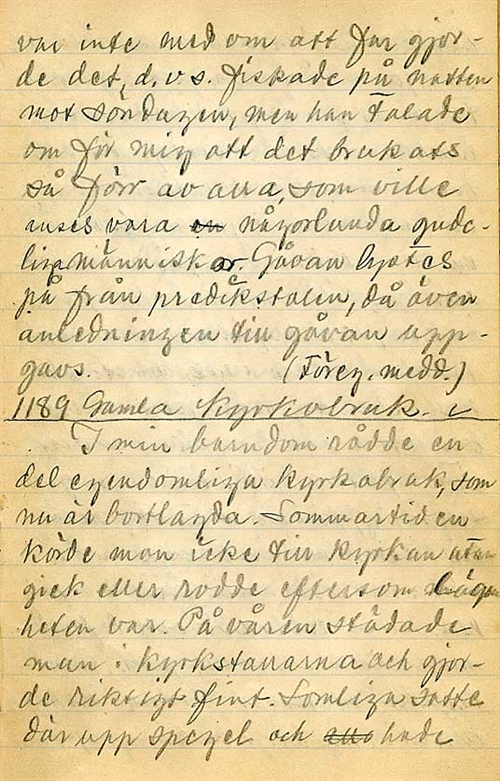 var inte med om att far gjor-
de det, d.v.s. fiskade på natten
mot söndagen, men han talade
om för mig att det brukats
så förr av alla, som ville
anses vara en någorlunda gude-
liga människor. Gåvan lystes
på från predikstolen, då även
anledningen till gåvan upp-
gavs. (Föreg. medd.)
1189 Gamla kyrkobruk.
I min barndom rådde en
del egendomliga kyrkobruk, som
nu är bortlagda. Sommartid en
körde man icke till kyrkan utan
gick eller rodde eftersom lägen
heten var. På våren städade
man i kyrkstallarna och gjor-
de riktigt fint. Somliga satte
där upp spegel och hade